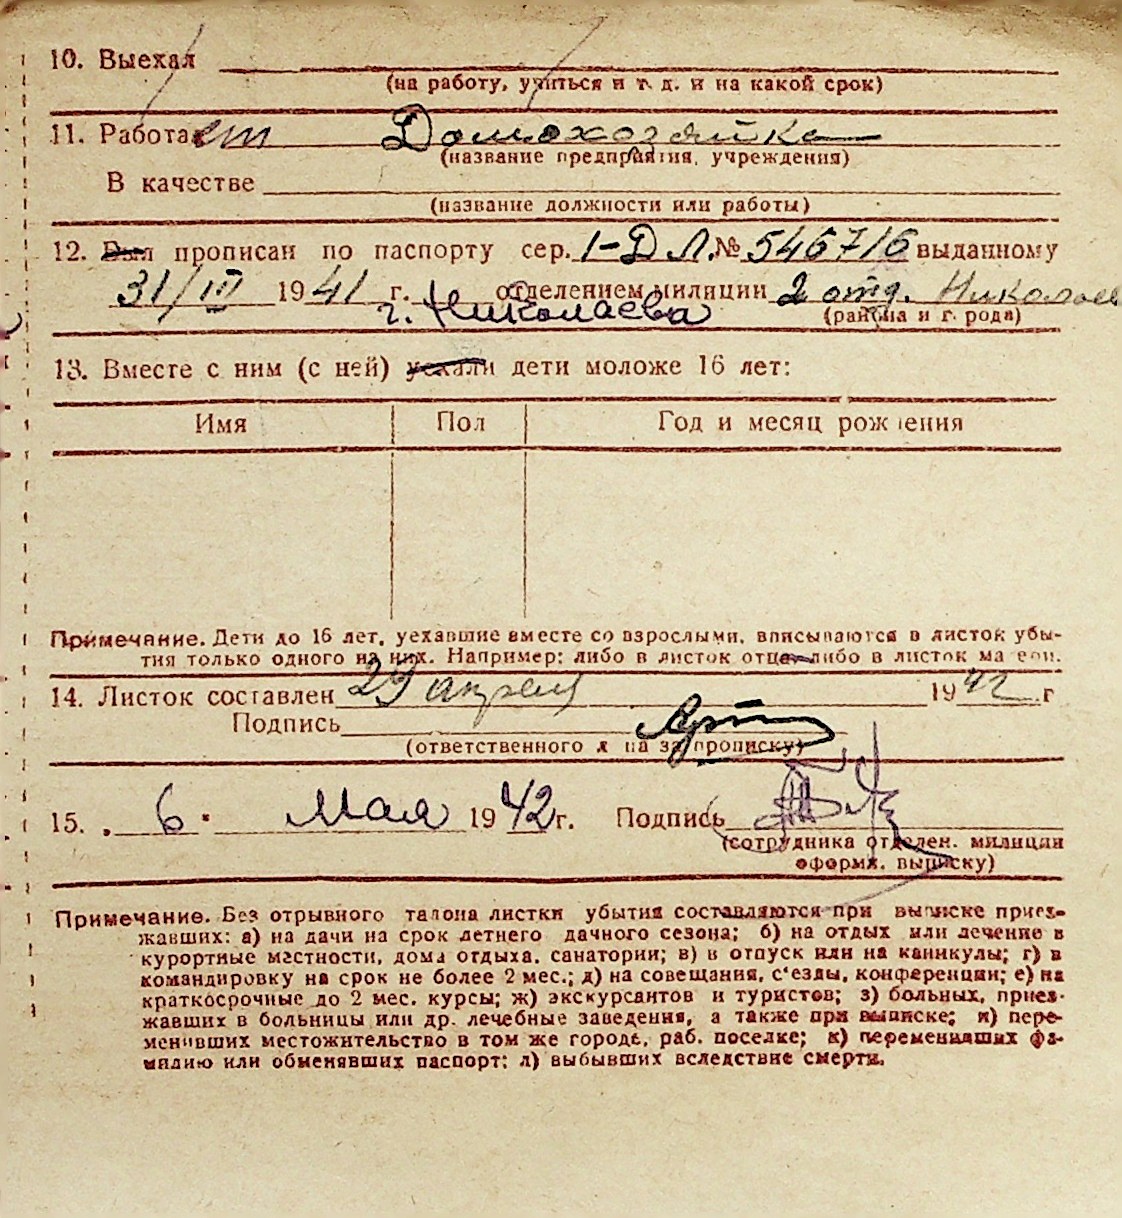 10. Выехал
(на работу, учиться и т. д. и на какой срок)
11. Работает Домохозяйка
(название предприятия, учреждения)
В качестве
(название должности или работы)
12. Был прописан по паспорту сер. I-ДЛ. № 546716 выданному
31/III 1941 г. отделением милиции 2 отд. Николаев
г. Николаева (района и г. рода)
13. Вместе с ним (с ней) уехали дети моложе 16 лет:
Имя Пол Год и месяц рождения
Примечание. Дети до 16 лет, уехавшие вместе со взрослыми, вписываются в листок убы-
тия только одного из них. Например: либо в листок отца либо в листок матери.
14. Листок составлен 29 апреля 1942 г
Подпись
(ответственного л на за прописку)
15. 6 Мая 1942 г. Подпись
(сотрудника отделен. милиции
оформл. выписку)
Примечание. Без отрывного талона листки убытия составляются при выписке приез-
жавших: а) на дачи на срок летнего дачного сезона; б) на отдых или лечение в
курортные местности, дома отдыха, санатории; в) в отпуск или на каникулы; г) в
командировку на срок не более 2 мес.; д) на совещания, с'езды, конференции; е) на
краткосрочные до 2 мес. курсы; ж) экскурсантов и туристов; з) больных, приез-
жавших в больницы или др. лечебные заведения, а также при выписке; и) пере-
менивших местожительство в том же городе, раб. поселке; к) переменивших фа-
милию или обменявших паспорт; л) выбывших вследствие смерти.